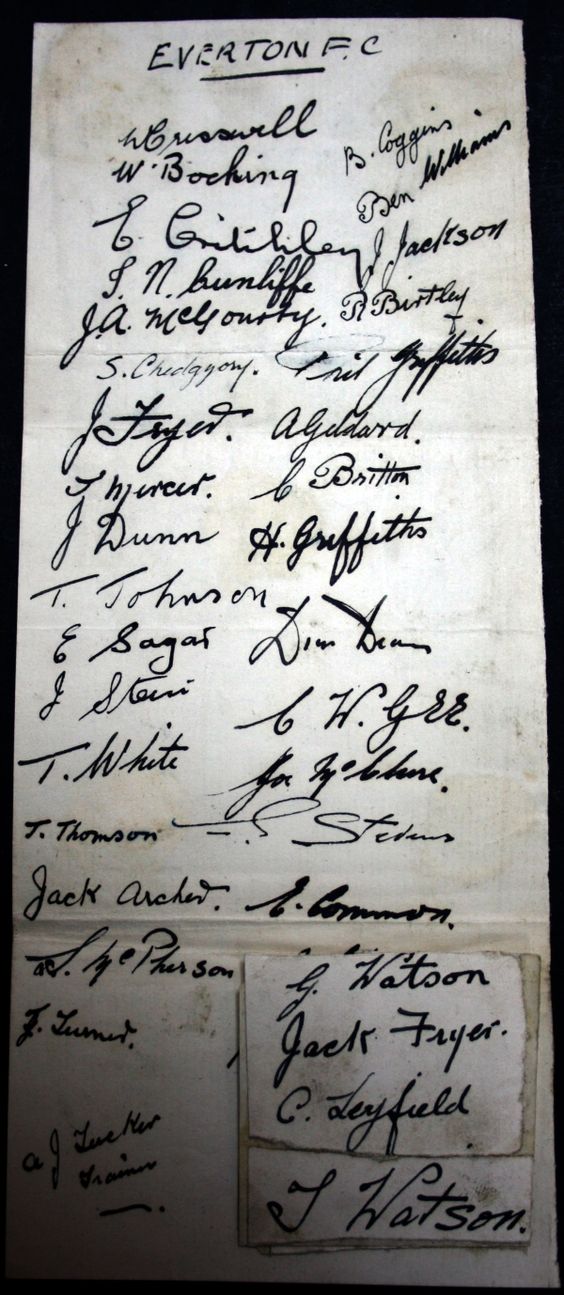 EVERTON F.C
W Cresswell
W. Bocking
B. Coggins
Ben Williams
E Critchley
J Jackson
J. N. Cunliffe
J.A. McGourty.
R Birtley
S. Chedgzoy.
Phil Griffiths
J Fryer.
A Geldard.
J Mercer.
C Britton
J Dunn
H. Griffiths
T. Johnson
E Sagar
Dixie Dean
J Stein
C W. GEE.
T. White
Joe McClure.
J. Thomson
Stevens
Jack Archer.
E. Common.
McPherson
G. Watson
J. Turner.
Jack Fryer.
C. Leyfield
A J Tucker
Trainer
T Watson.